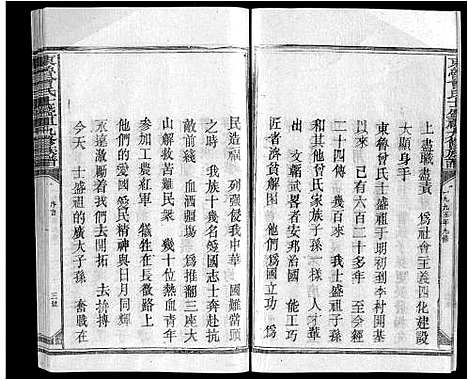 上盡職盡責 為社會主義四化建設
大顯身手
東魯曾氏士盛祖于明初到李村開基
以來 已有六百二十多年 至今經
二十四傳 幾百來 我士盛祖子孫
和其他曾氏家族子孫一樣 人才華
出 文韜武畧者安邦治國 能工巧
匠者濟貧解困
他們 為國立功 為
民造福 列強侵我中華 國難當頭
之時 我族十幾名愛國志士奔赴抗
日前綫 血酒疆場 為推翻三座大
山解救苦難民衆 幾十位熱血青年
參加工農紅軍 犧牲在長徵路上
他們的愛國愛民精神與日月同輝
永遠激勵我們去開拓 去拚搏
今天 士盛祖的廣大子孫 奮戰在
序言
三號